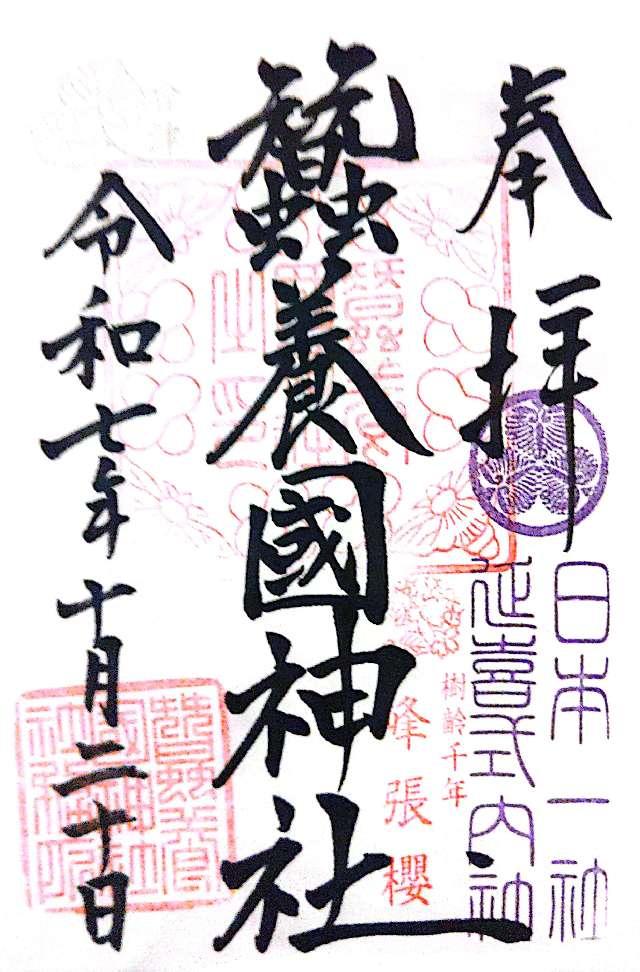 奉拝
日本一社
延喜式内社
樹齢千年
峰張櫻
蠶養國神社
令和七年十月二十日